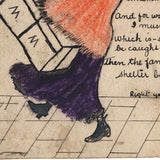 And for w
I mus
Which is-
be caught
then the fam
shelter b
Right y